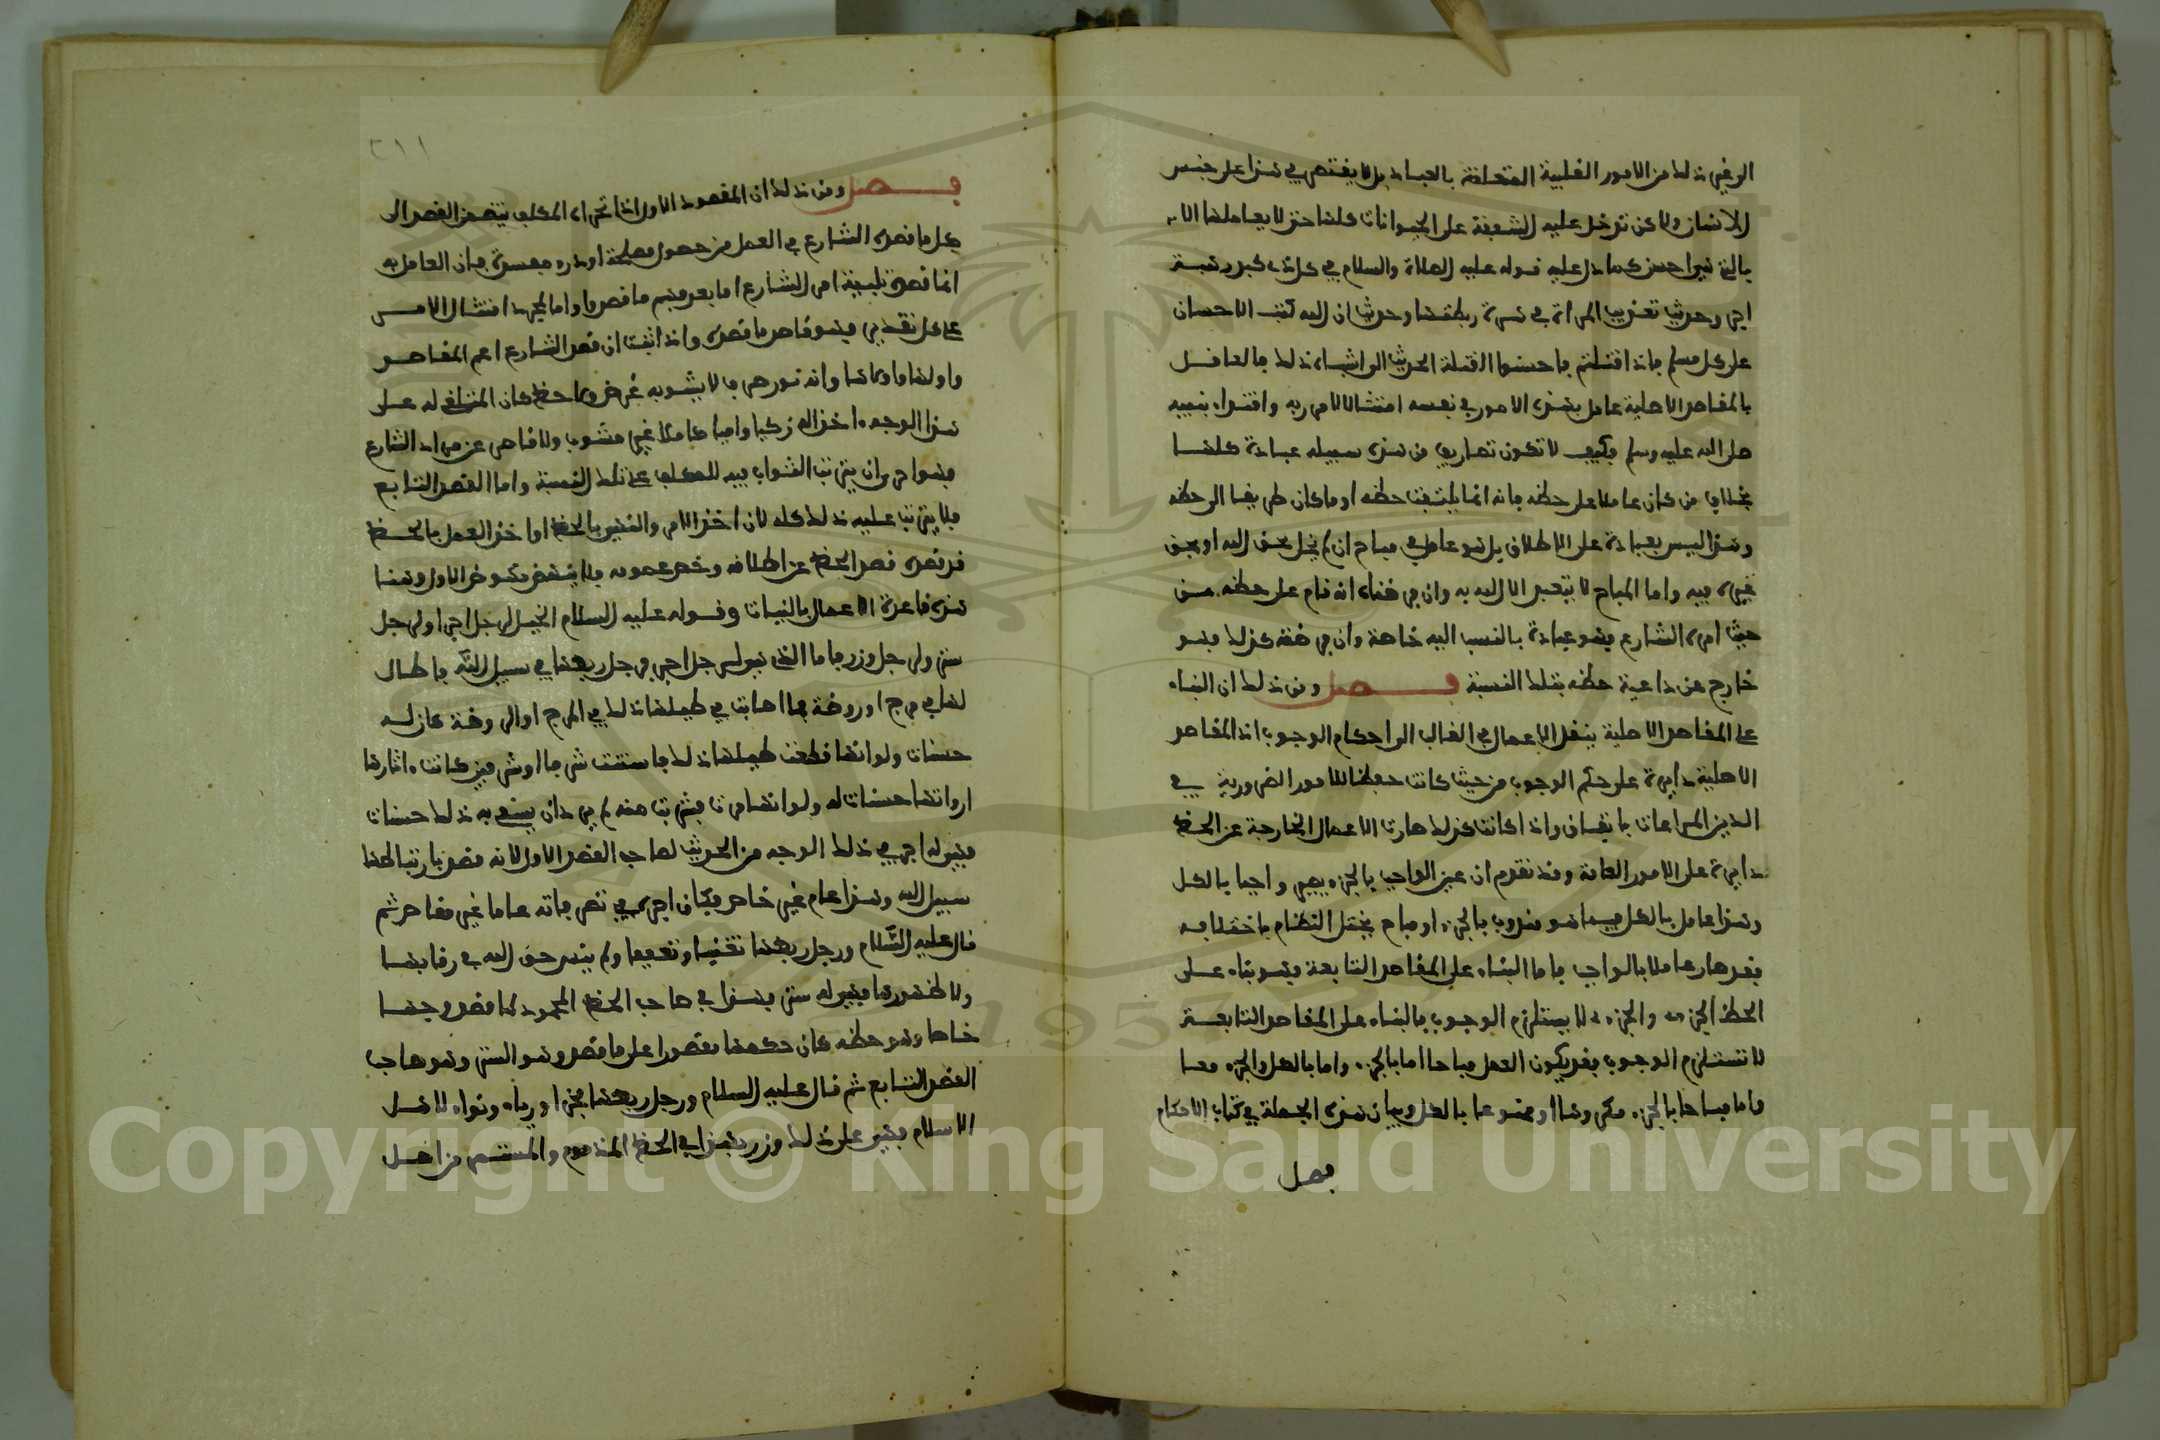 الى غير ذلك من الامور القلبية المتعلقة بالعباد بل لا يقتصر في هذا على جنس
الانسان ولاكن تدخل عليه الشفقة على الحيوانات كلها حتى لا يعاملها الا
بالتي هي احسن كما دل عليه قوله عليه الصلاة والسلام في كل ذي كبد رطبة
اجر وحديث تعذيب المراة في هرة ربطتها وحديث ان الله كتب الاحسان
على كل مسلم فاذا قتلتم فاحسنوا القتلة الحديث الى اشباه ذلك فالعامل
بالمقاصد الاصلية عامل بهذه الامور في نفسه امتثالا لامر ربه واقتداء بنبيه
صلى الله عليه وسلم فكيف لا تكون تصاريف من هذه سبيله عبادة كلها
بخلاف من كان عاملا على حظه فانه انما يلتفت حظه او ما كان طريقا الى حظه
وهذا ليس بعبادة على الاطلاق بل هو عامل في مباح ان لم يخل بحق الله او بحق
غيره فيه واما المباح لا يتعبد الا الله به وان فرضناه انه قام على حظه من
حيث امره الشارع فهو عبادة بالنسبة اليه خاصة وان فرضته كذلك فهو
خارج عن داعية حظه بتلك النسبة فصل ومن ذلك ان البناء
على المقاصد الاصلية ينقل الاعمال في الغالب الى احكام الوجوب اذ المقاصد
الاصلية دايرة على حكم الوجوب من حيث كانت حفظا للامور الضرورية في
الدين المراعات باتفاق واذا كانت كذلك صارت الاعمال الخارجة عن الحظ
دايرة على الامور العامة وقد تقدم ان غير الواجب بالجزء يصير واجبا بالكل
وهذا عامل بالكل فيما هو مندوب بالجزء او مباح يختل النظام باختلاله
فقد صار عاملا بالواجب فاما البناء على المقاصد التابعة فهو بناء على
الحظ الجزءي والجزءي لا يستلزم الوجوب فالبناء على المقاصد التابعة
لا تستلزم الوجوب فقد يكون العمل مباحا اما بالجزء واما بالكل والجزء معا
واما مباحا بالجزء مكروها او ممنوعا بالكل وبيان هذه الجملة في كتاب الاحكام
فصل
٢١١
فصل ومن ذلك ان المقصود الاول اذا تحراه المكلف يتضمن القصد الى
كل ما قصده الشارع في العمل من حصول مصلحة او درء مفسدة فان العامل به
انما قصده تلبية امر الشارع اما بعد فهم ما قصد واما لمجرد امتثال الامر
على كل تقدير فهو قاصد ما قصده واذا ثبت ان قصد الشارع اعم المقاصد
واولها واولاها وانه نور صرف لا يشوبه غرض ولا حظ كان المتلقي له على
هذا الوجه اخذا له زكيا وافيا كاملا غير مشوب ولا قاصر عن مراد الشارع
فهو احر ان يترتب الثواب فيه للمكلف على تلك النسبة واما القصد التابع
فلا يترتب عليه ذلك كله لان اخذ الامر والنهي بالحظ او اخذ العمل بالحظ
قد قصره قصد الحظ عن اطلاقه وخص عمومه فلا ينهض نهوض الاول وهنا
هذه قاعدة الاعمال بالنيات وقوله عليه السلام الخيل لرجل اجر ولرجل
ستر ولرجل وزر فاما الذي هي له اجر فرجل ربطها في سبيل الله فاطال
لها في مرج او روضة فما اصابت في طيلها ذلك في المرج او الروضة كان له
حسنات ولو انها قطعت طيلها ذلك فاستنت شرفا او شرفين كانت اثارها
ارواثها حسنات له ولو انها مرت بنهر فشربت منه ولم يرد ان يسقي به ذلك حسنات
فهي له اجر في ذلك الوجه من الحديث لصاحب القصد الاول لانه قصد بارتباطها
سبيل الله وهذا عام غير خاص فكان اجره في تصرفاته عاما غير قاصر ثم
قال عليه السلام ورجل ربطها تغنيا وتعففا ولم ينس حق الله في رقابها
ولا ظهورها فهي له ستر فهذا في صاحب الحظ المحمود لما قصد وجها
خاصا وهو حظه كان حكمها مقصورا على ما قصد وهو الستر وهو صاحب
القصد التابع ثم قال عليه السلام ورجل ربطها فخرا ورياء ونواء لاهل
الاسلام فهي على ذلك وزر فهذا في الحظ المذموم والمستمد من اصل